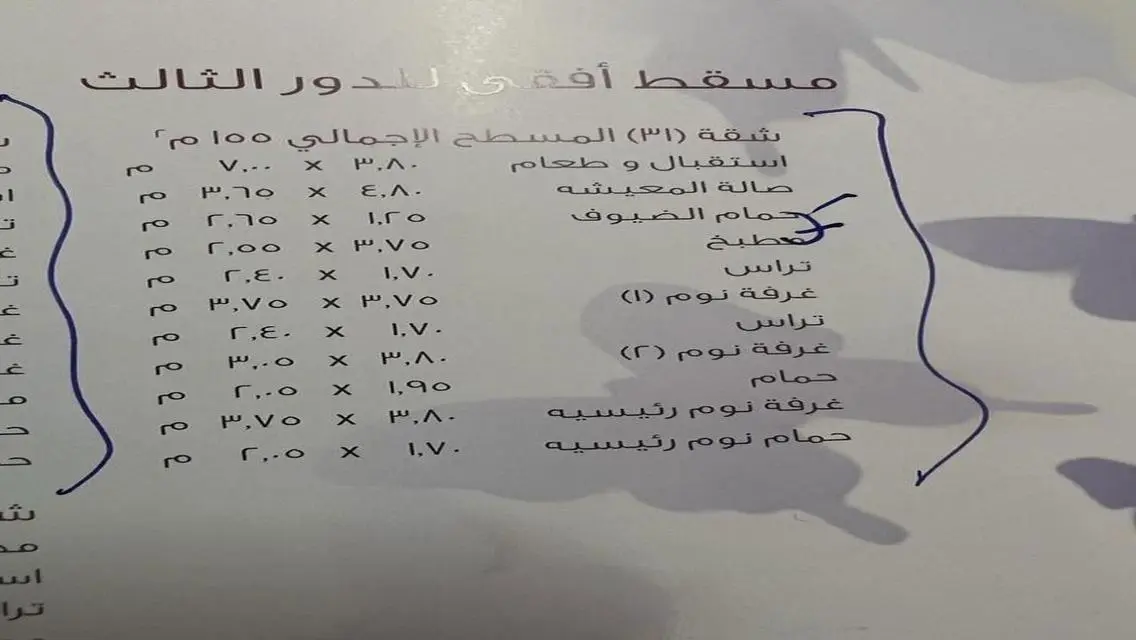 مسقط أفقى للدور الثالث
شقة (٣١) المسطح الإجمالي ١٥٥ م٢
استقبال و طعام ٣,٨٠ × ٧,٠٠ م
صالة المعيشه ٤,٨٠ × ٣,٦٥ م
حمام الضيوف ١,٢٥ × ٢,٦٥ م
مطبخ ٣,٧٥ × ٢,٥٥ م
تراس ١,٧٠ × ٢,٤٠ م
غرفة نوم (١) ٣,٧٥ × ٣,٧٥ م
تراس ١,٧٠ × ٢,٤٠ م
غرفة نوم (٢) ٣,٨٠ × ٣,٠٥ م
حمام ١,٩٥ × ٢,٠٥ م
غرفة نوم رئيسيه ٣,٨٠ × ٣,٧٥ م
حمام نوم رئيسيه ١,٧٠ × ٢,٠٥ م